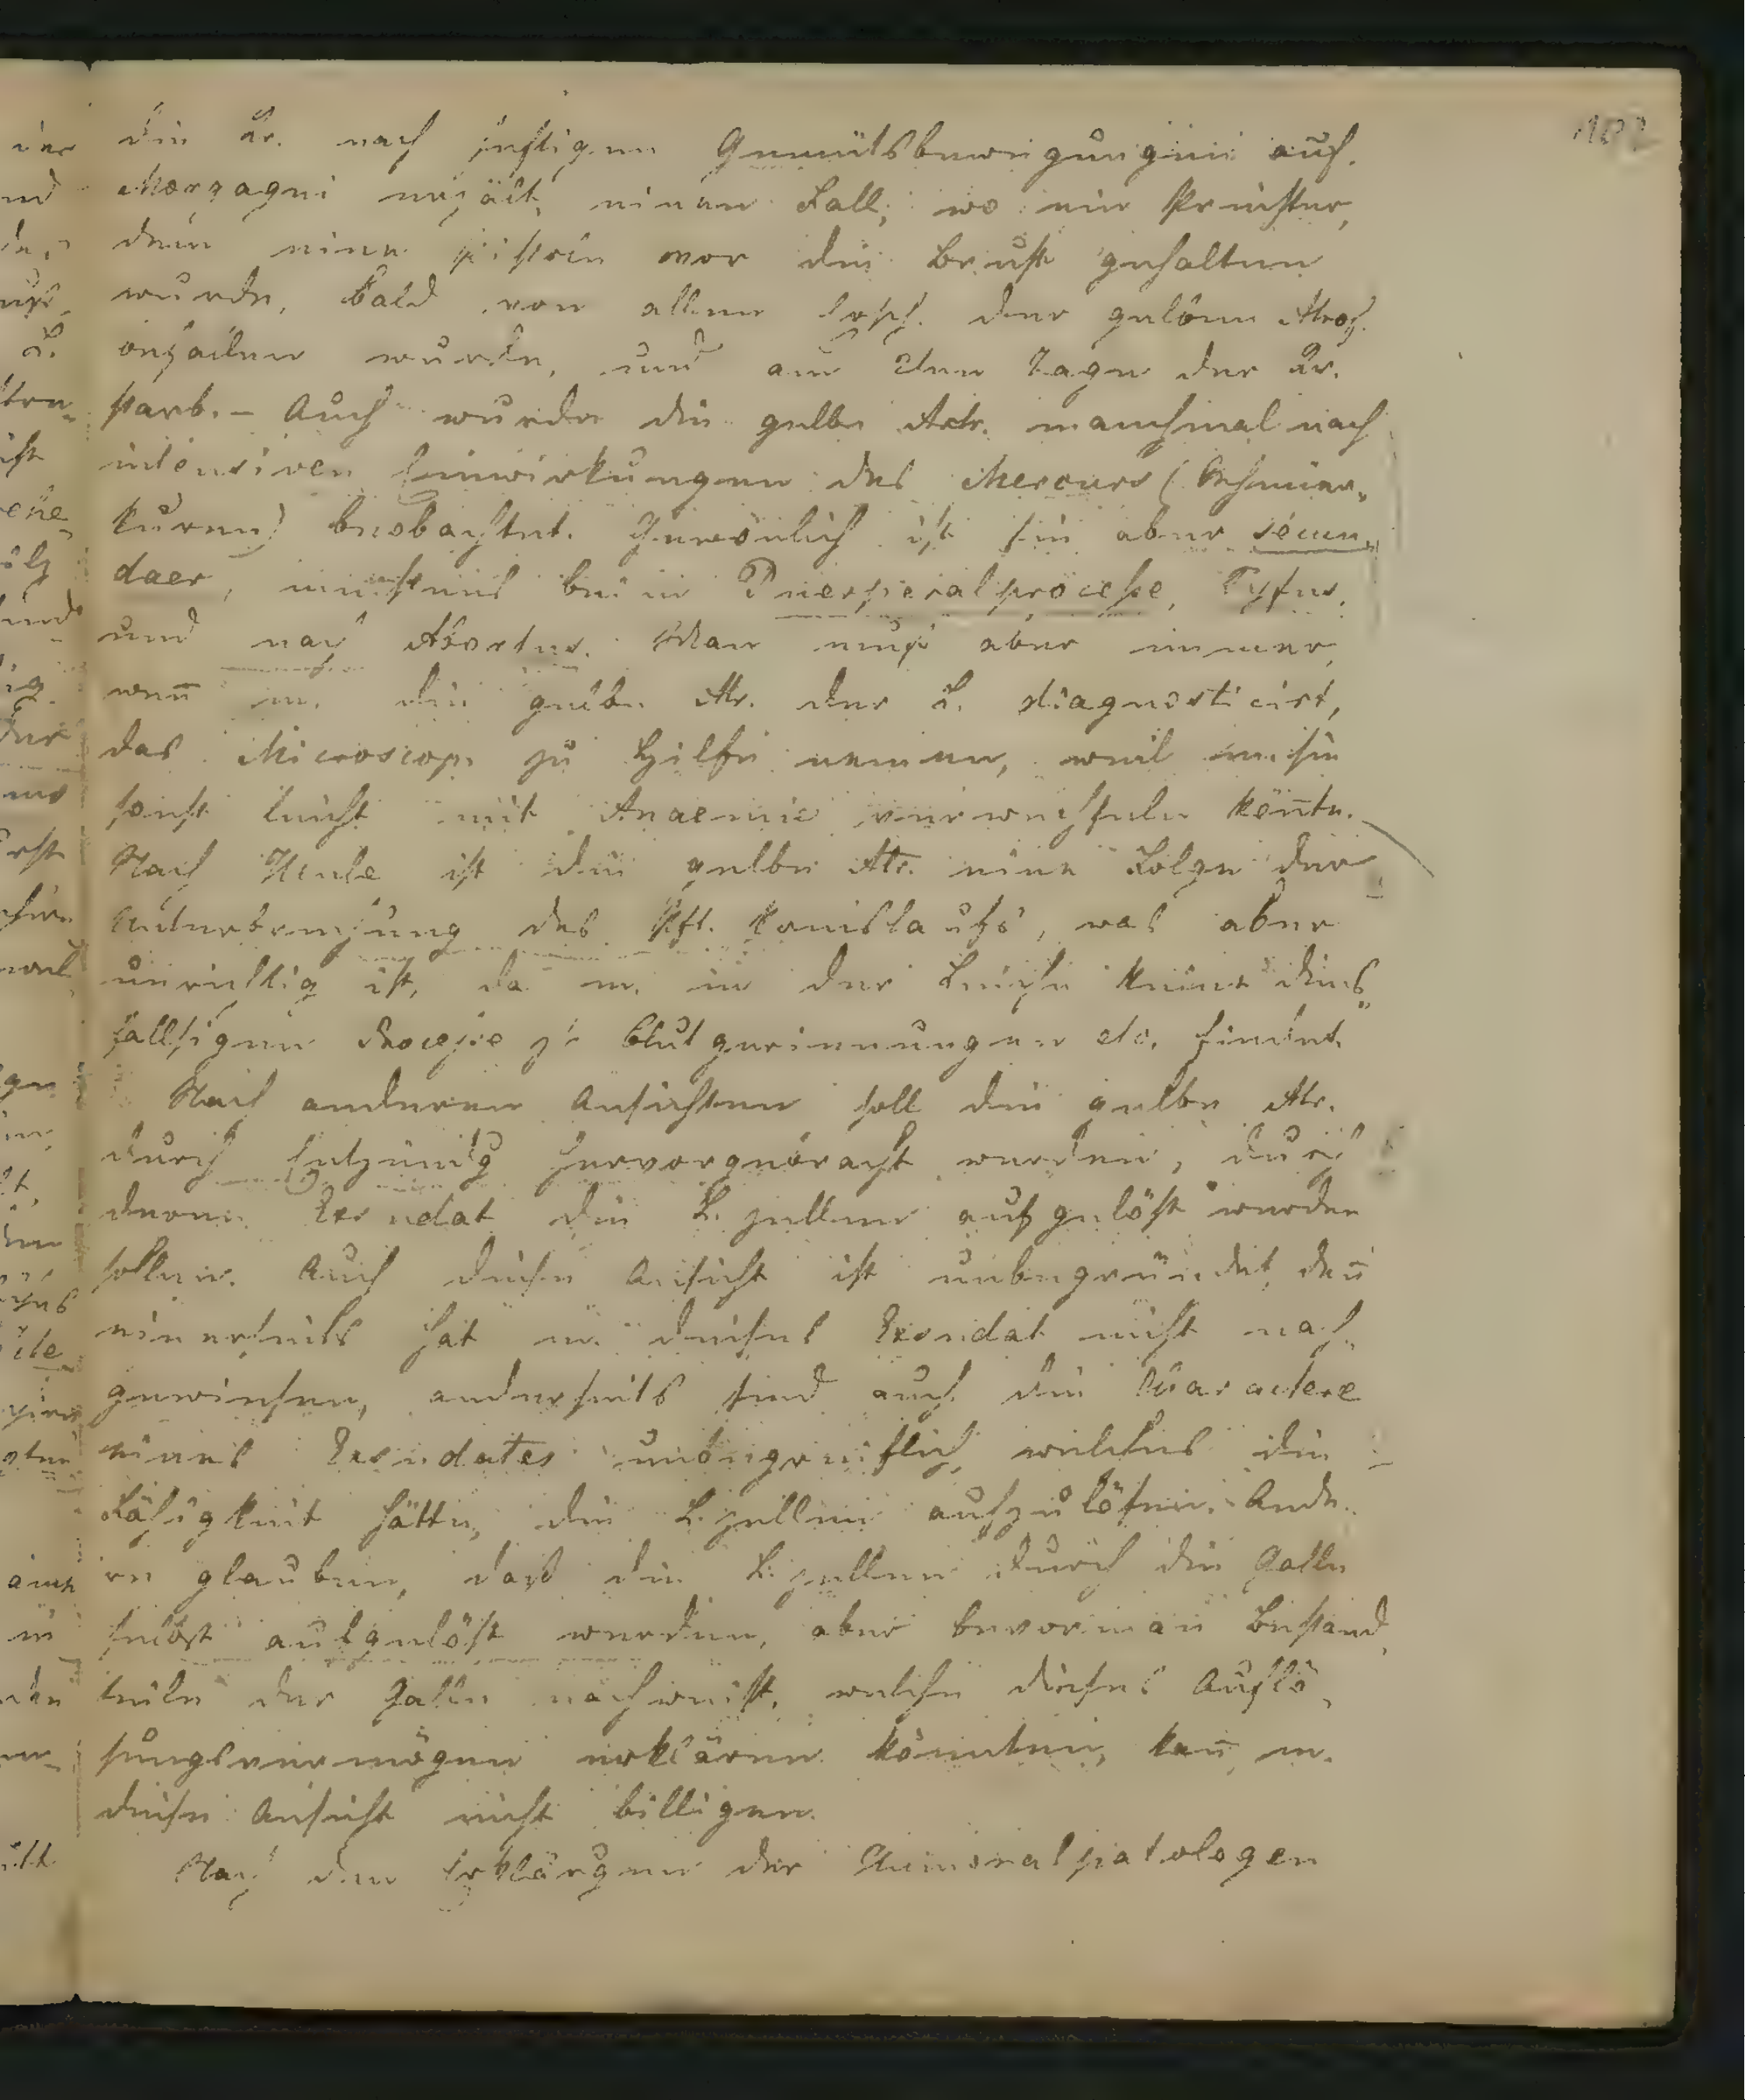 die Kr. nach heftigen Gemütsbewegungen auf.
Morgagni erzält einen Fall, wo ein Priester,
dem eine Pistole vor die Brust gehalten
wurde, bald von allen der gelben Atrof.
befallen wurde, und am Tage der Kr.
starb. – Auch wurde die gelbe Atr. manchmal nach
intensiven Einwirkungen des Mercurs (Schmier-
kuren) beobachtet. Gewönlich ist sie aber secun-
daer, meistens beim Puerperalprocesse, Tyfus,
und nach Abortus. Man muß aber immer,
wen̄ m. die gelbe Atr. der L. diagnosticirt,
das Microscop zu Hilfe nemen, weil m. sie
sonst leicht mit Anaemie verwechseln kön̄te.
Nach Henle ist die gelbe Atr. eine Folge der
Unterbrechung des Kreislaufs, was aber
unrichtig ist, da m. in der Leiche keine dies-
fallsigen Processe z.B. Blutgerinnungen etc. findet.
Nach anderen Ansichten soll die gelbe Atr.
durch Entzündg hervorgebracht werden, durch
deren Exsudat die L. zellen aufgelöst werden
sollen. Auch diese Ansicht ist unbegründet, den̄
einerseits hat m. dieses Exsudat nicht nach-
gewiesen, anderseits sind auch die Charactere
eines Exsudates unbegreiflich, welches die
Fähigkeit hätte, die L. zellen aufzulösen. Ande-
re glauben, daß die L. zellen durch die Galle
selbst aufgelöst werden, aber bevor man Bestand-
teile der Galle nachweist, welche dieses Auflö-
sungsvermögen erklären könnten, kan̄ m.
diese Ansicht nicht billigen.
Nach den Erklärgen der Humoralpatologen